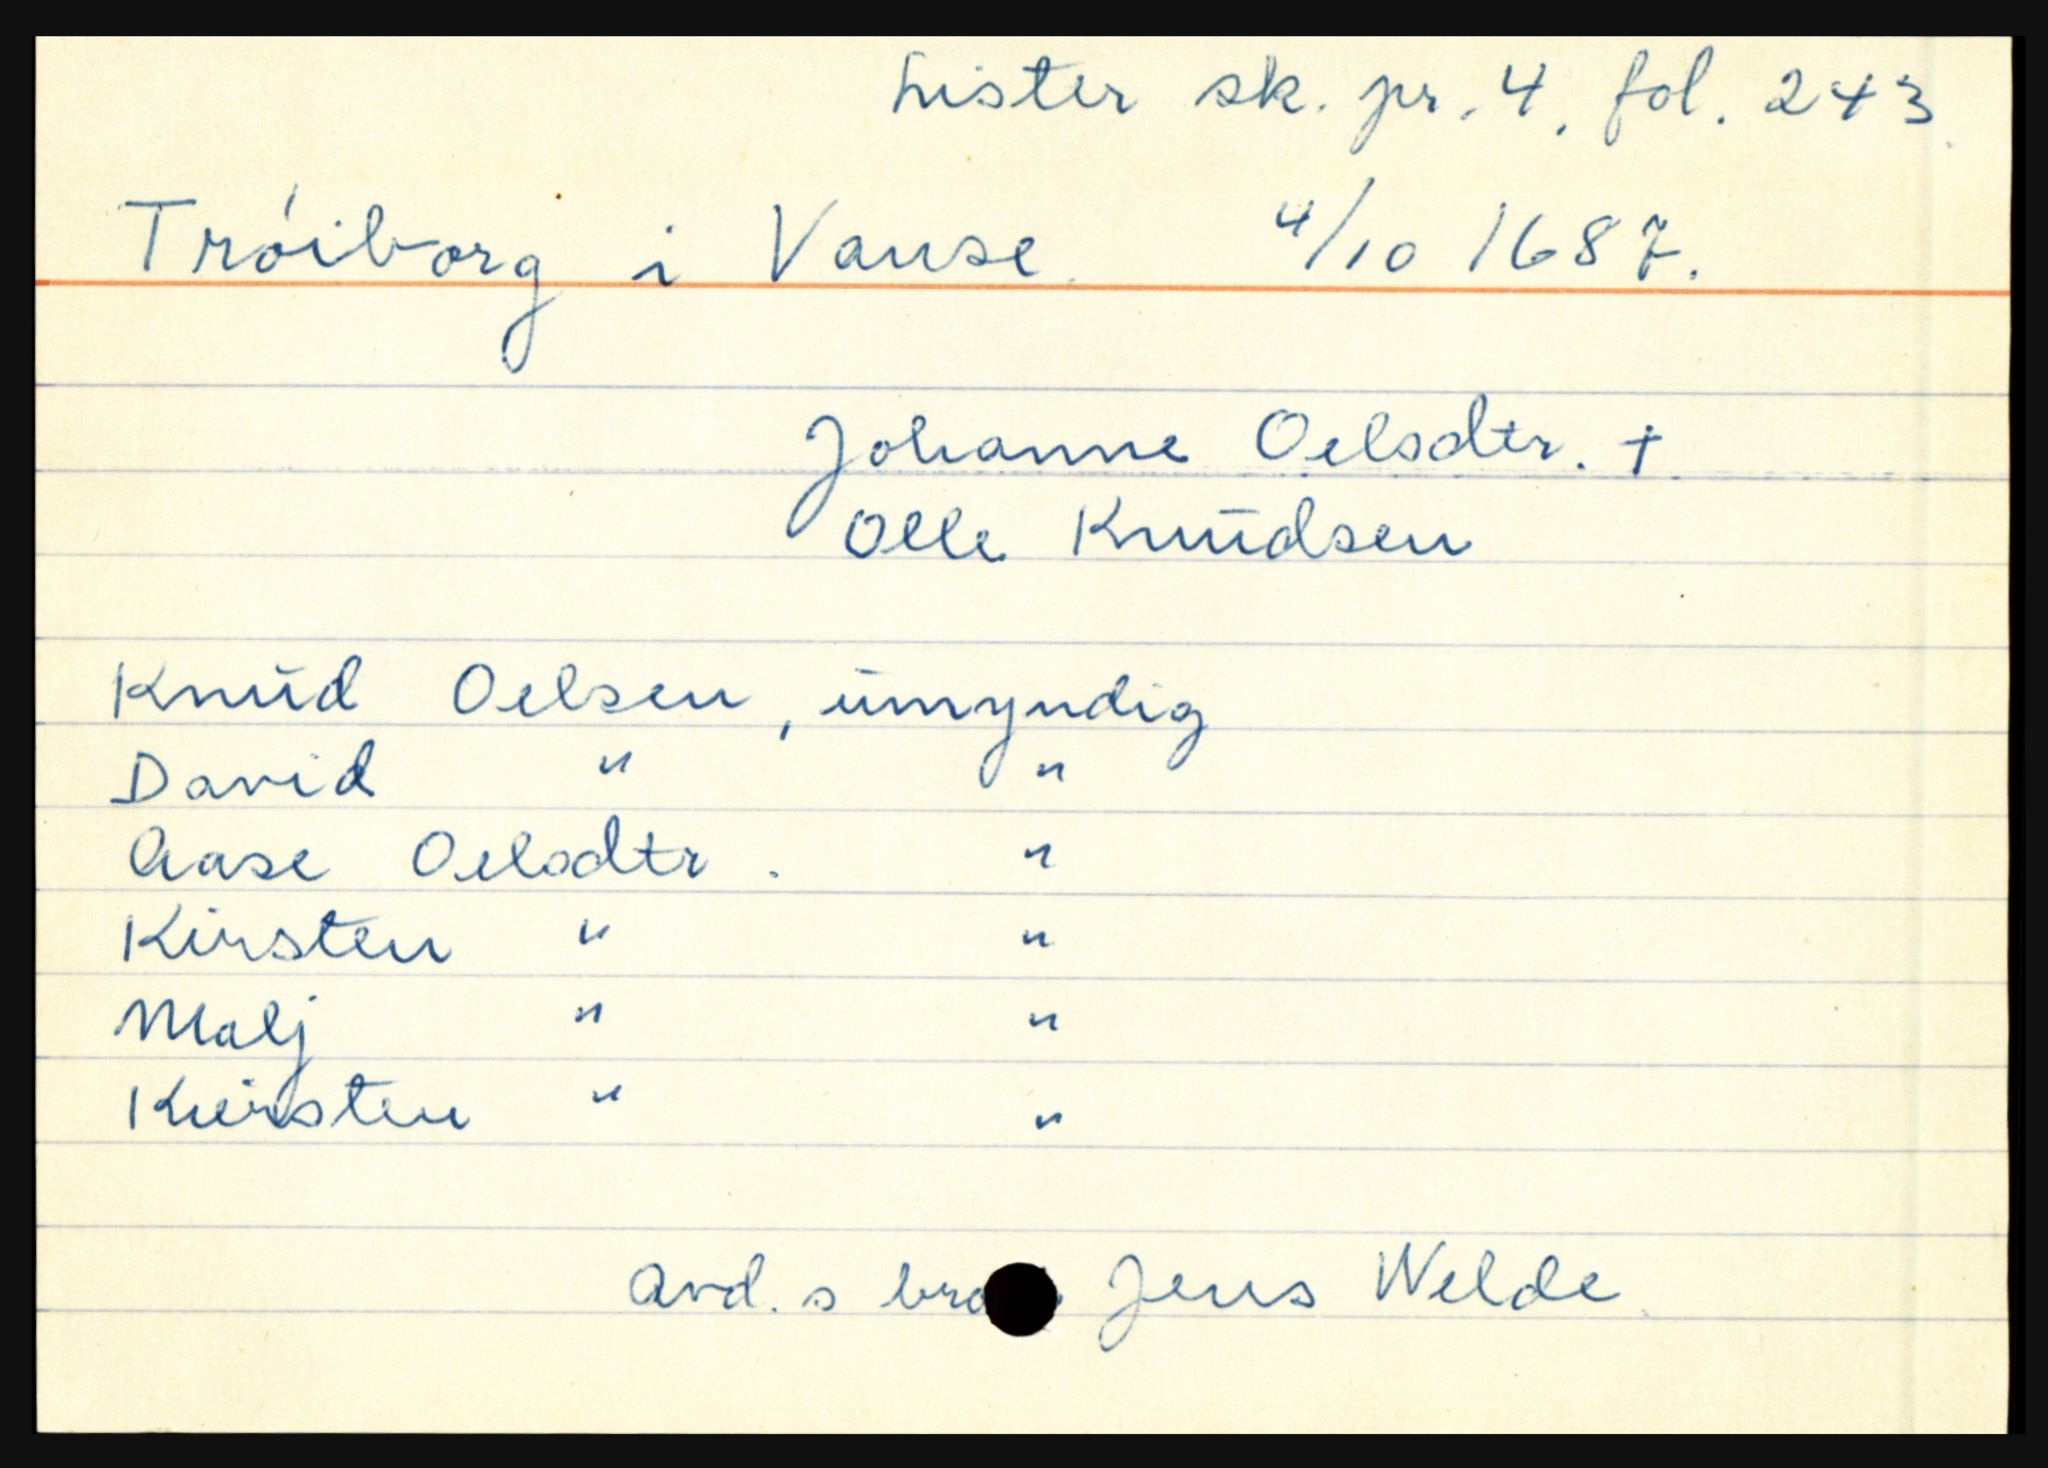 Lister sk. pr. 4, fol. 243.
Tróiborg i Vanse 4/10 1687.
Johanne Oelsdtr. †
Olle Knudsen
Knud Oelsen, umyndig
David " "
Aase Oelsdtr. "
Kirsten " "
Malj " "
Kiersten " "
Avd. s Jens Welde